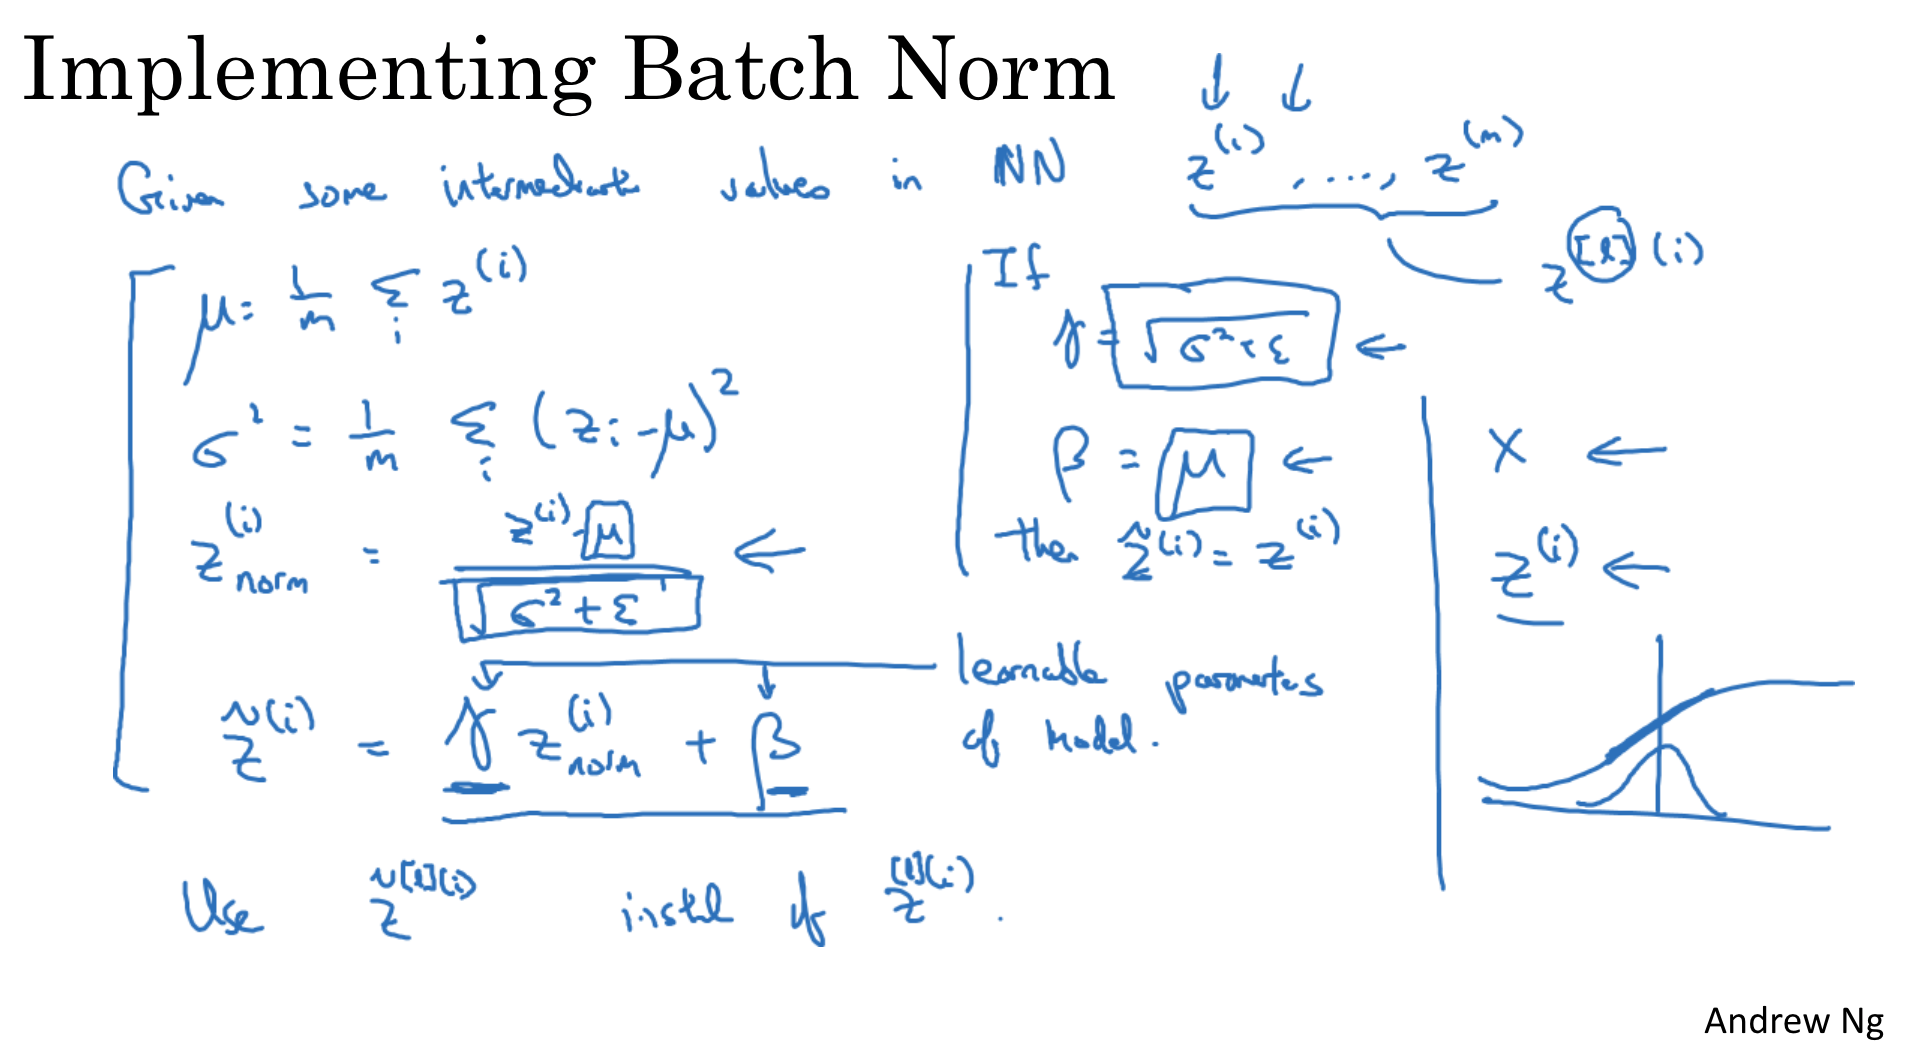 Implementing Batch Norm
Given some intermediate values in NN z^(i), ...., z^(m)
z^[l](i)
μ = 1/m Σ_i z^(i)
σ² = 1/m Σ_i (z_i - μ)²
z^(i)_norm = (z^(i) - μ) / √(σ² + ε)
z̃^(i) = γ z^(i)_norm + β
learnable parameters
of model.
If
γ = √(σ² + ε)
β = μ
then z̃^(i) = z^(i)
X
z^(i)
Use z̃^[l](i) instead of z^[l](i).
Andrew Ng